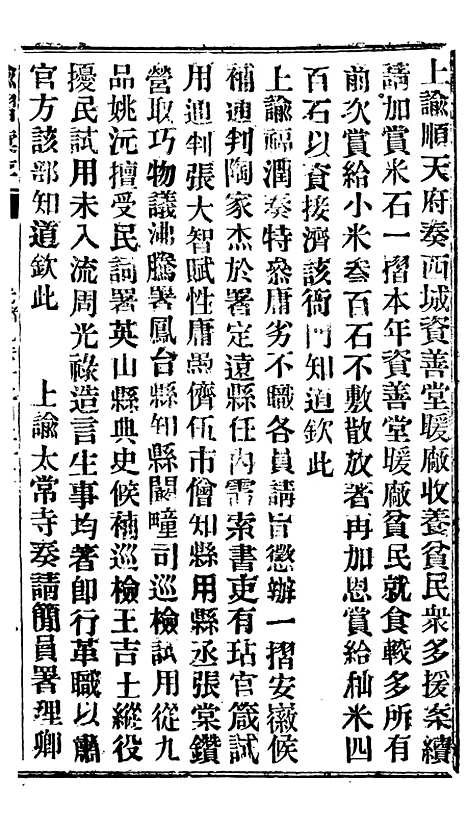 上諭順天府奏西城資善堂暖廠收養貧民衆多援案續
請加賞米石一摺本年資善堂暖廠貧民就食較多所有
前次賞給小米叁百石不敷散放著再加恩賞給秈米四
百石以資接濟該衙門知道欽此
上諭福潤奏特叅庸劣不職各員請旨懲辦一摺安徽候
補通判陶家杰於署定遠縣任內需索書吏有玷官箴試
用通判張大智賦性庸愚儕伍市儈知縣用縣丞張棠鑽
營取巧物議沸騰署鳳台縣知縣闞疃司巡檢試用從九
品姚沅擅受民詞署英山縣典史候補巡檢王吉士縱役
擾民試用未入流周光祿造言生事均著卽行革職以肅
官方該部知道欽此　上諭太常寺奏請簡員署理卿